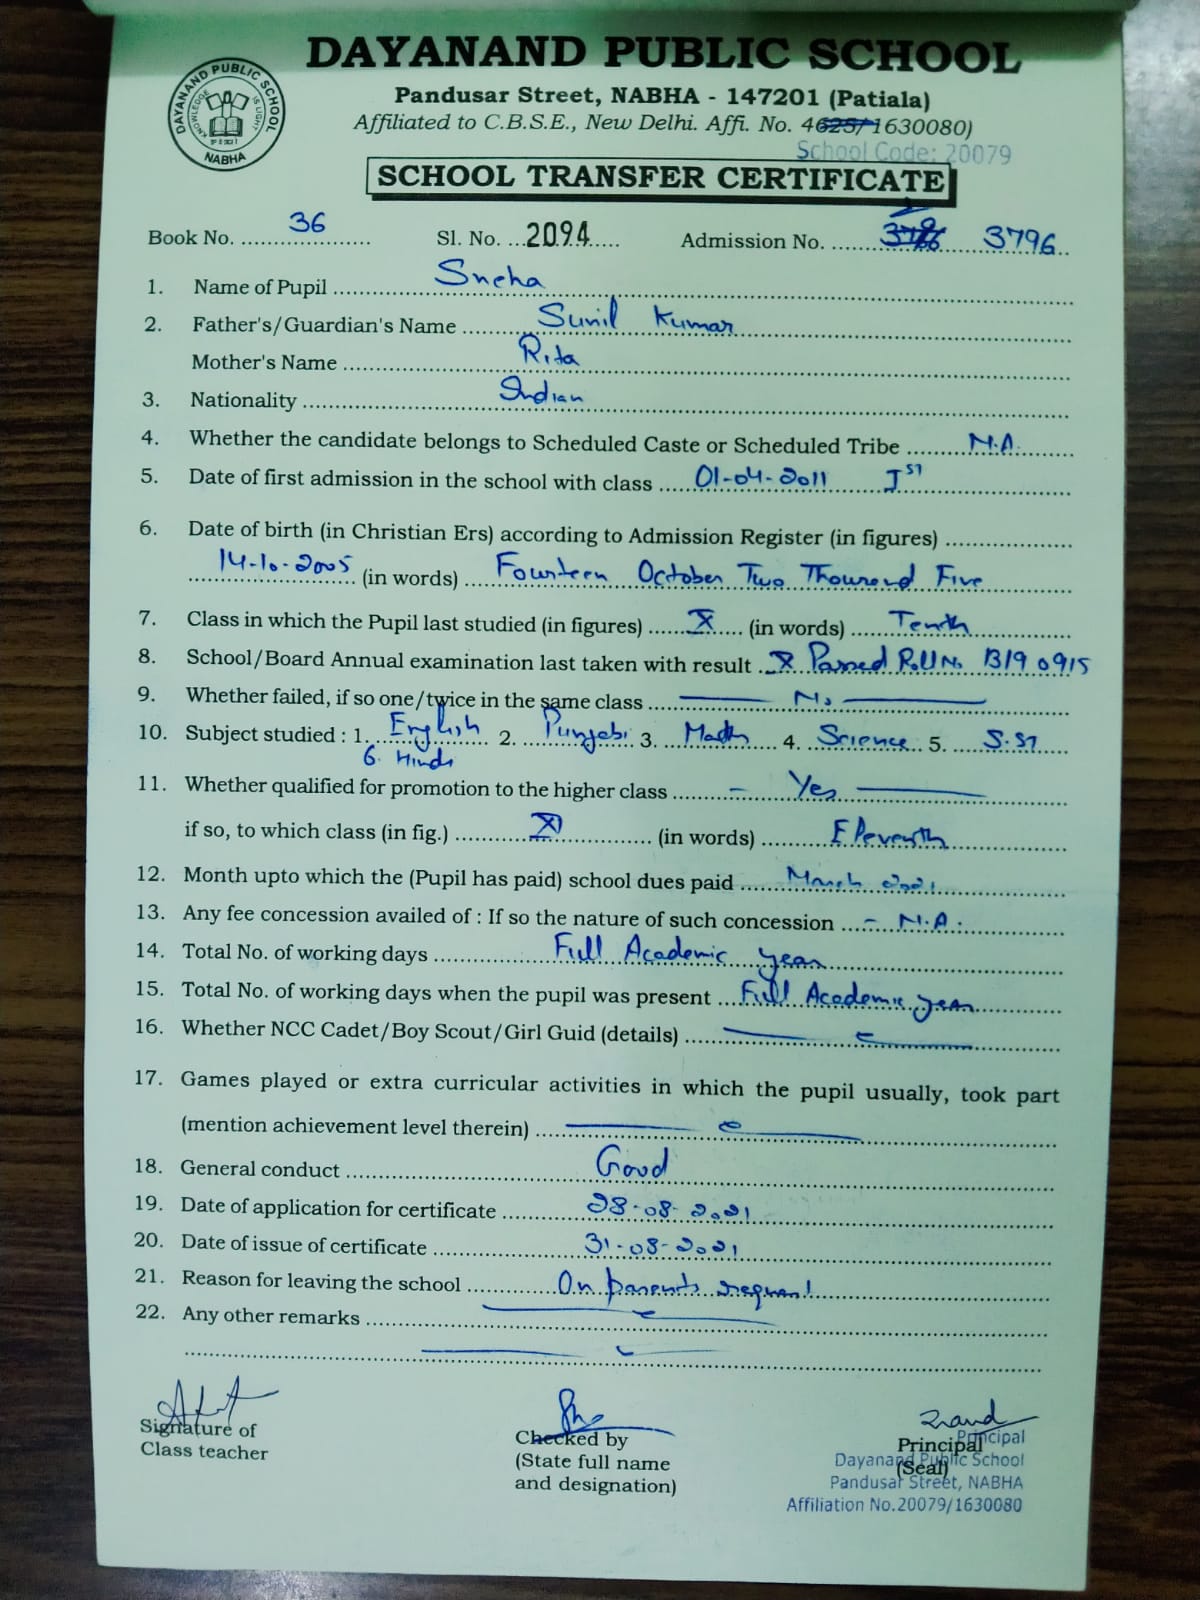 DAYANAND PUBLIC SCHOOL
DAYANAND PUBLIC SCHOOL
KNOWLEDGE IS LIGHT
NABHA
Pandusar Street, NABHA - 147201 (Patiala)
Affiliated to C.B.S.E., New Delhi. Affi. No. 4625/1630080)
School Code: 20079
SCHOOL TRANSFER CERTIFICATE
Book No. 36 Sl. No. 2094 Admission No. 3796
1. Name of Pupil Sneha
2. Father's/Guardian's Name Sunil Kumar
Mother's Name Rita
3. Nationality Indian
4. Whether the candidate belongs to Scheduled Caste or Scheduled Tribe N.A.
5. Date of first admission in the school with class 01-04-2011 Ist
6. Date of birth (in Christian Ers) according to Admission Register (in figures)
14-10-2005 (in words) Fourteen October Two Thousand Five
7. Class in which the Pupil last studied (in figures) X (in words) Tenth
8. School/Board Annual examination last taken with result X Passed Roll No. B190915
9. Whether failed, if so one/twice in the same class No
10. Subject studied : 1. English 2. Punjabi 3. Math 4. Science 5. S.St
6. Hindi
11. Whether qualified for promotion to the higher class - Yes
if so, to which class (in fig.) XI (in words) Eleventh
12. Month upto which the (Pupil has paid) school dues paid March 2021
13. Any fee concession availed of : If so the nature of such concession - N.A.
14. Total No. of working days Full Academic year
15. Total No. of working days when the pupil was present Full Academic year
16. Whether NCC Cadet/Boy Scout/Girl Guid (details)
17. Games played or extra curricular activities in which the pupil usually, took part
(mention achievement level therein)
18. General conduct Good
19. Date of application for certificate 28-08-2021
20. Date of issue of certificate 31-08-2021
21. Reason for leaving the school On parents request
22. Any other remarks
Signature of
Class teacher
Checked by
(State full name
and designation)
Principal
(Seal)
Principal
Dayanand Public School
Pandusar Street, NABHA
Affiliation No.20079/1630080